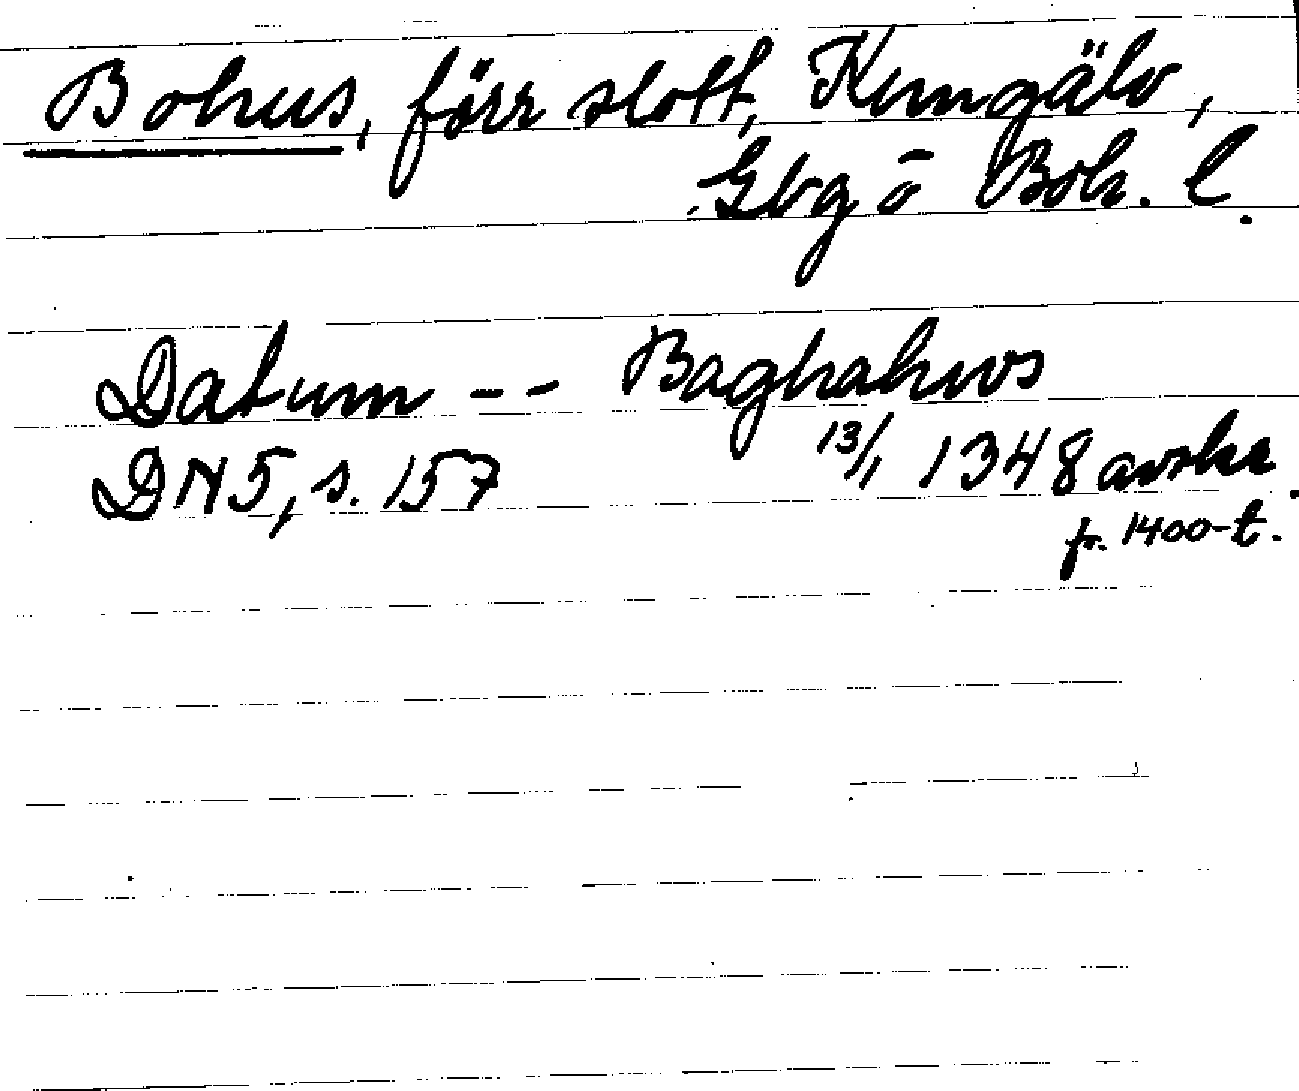 Bohus, förr slott, Kungälv,
Gbg o Boh. l.
Datum -- Baghahws
13/1 1348 avskr.
DN 5, s. 157
fr. 1400-t.